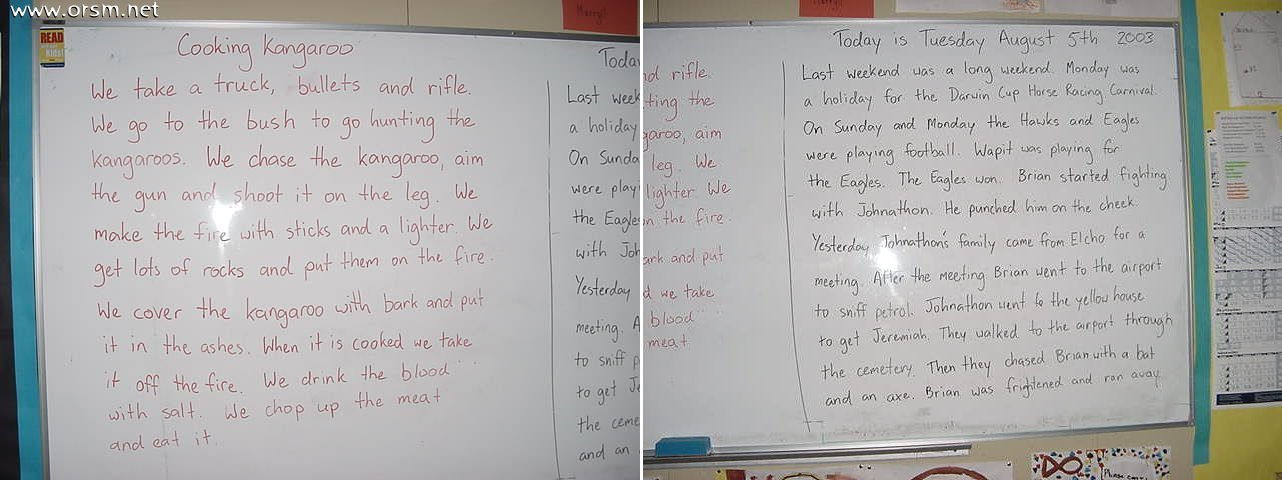 www.orsm.net
READ
Kids!
Cooking Kangaroo
We take a truck, bullets and rifle.
We go to the bush to go hunting the
kangaroos. We chase the kangaroo, aim
the gun and shoot it on the leg. We
make the fire with sticks and a lighter. We
get lots of rocks and put them on the fire.
We cover the kangaroo with bark and put
it in the ashes. When it is cooked we take
it off the fire. We drink the blood
with salt. We chop up the meat
and eat it.
Today
Last week
a holiday
On Sunda
were playi
the Eagles
with Joh
Yesterday
meeting. A
to sniff p
to get Je
the ceme
and an
nd rifle.
ting the
garoo, aim
leg. We
lighter. We
on the fire.
ark and put
d we take
blood
meat
Today is Tuesday August 5th 2003
Last weekend was a long weekend. Monday was
a holiday for the Darwin Cup Horse Racing Carnival.
On Sunday and Monday the Hawks and Eagles
were playing football. Wapit was playing for
the Eagles. The Eagles won. Brian started fighting
with Johnathon. He punched him on the cheek.
Yesterday Johnathon's family came from Elcho for a
meeting. After the meeting Brian went to the airport
to sniff petrol. Johnathon went to the yellow house
to get Jeremiah. They walked to the airport through
the cemetery. Then they chased Brian with a bat
and an axe. Brian was frightened and ran away.
Please